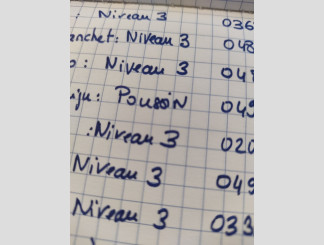 : Niveau 3 036
anchet: Niveau 3 048
o: Niveau 3 04
uju: Poussin 049
:Niveau 3 020
Niveau 3 049
Niveau 3 039